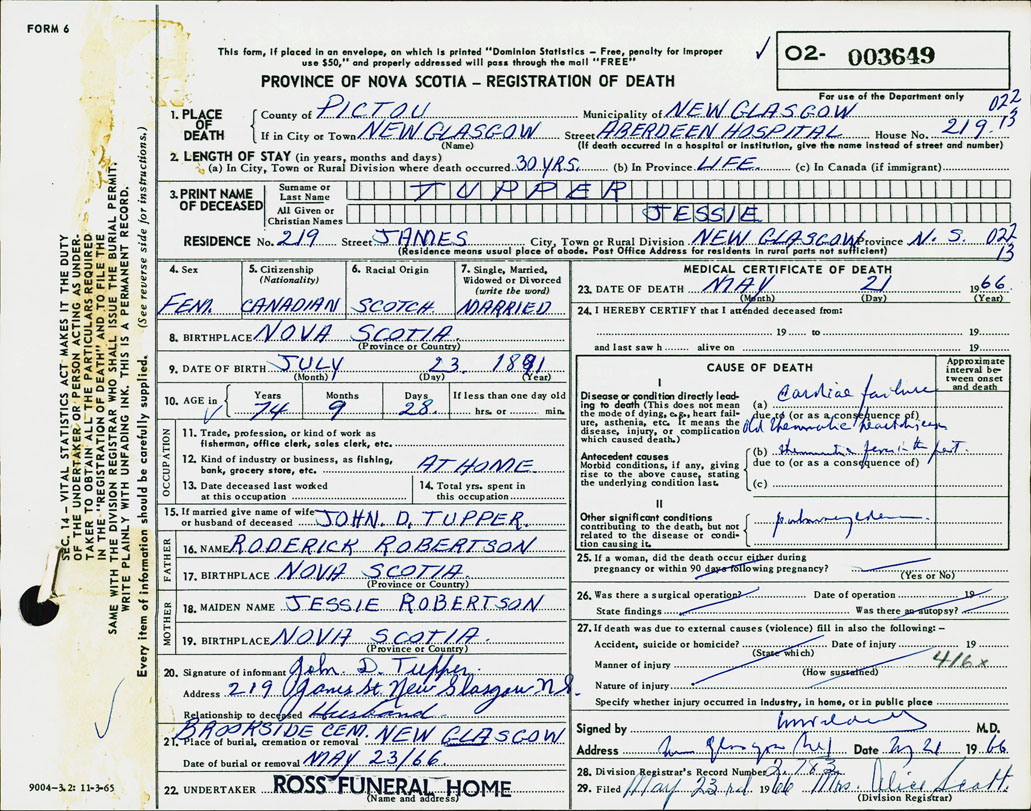 FORM 6
This form, if placed in an envelope, on which is printed "Dominion Statistics – Free, penalty for improper
use $50," and properly addressed will pass through the mail "FREE"
✓ O2- 003649
PROVINCE OF NOVA SCOTIA – REGISTRATION OF DEATH
For use of the Department only
1. PLACE OF DEATH
County of PICTOU Municipality of NEW GLASGOW 022
If in City or Town NEW GLASGOW Street ABERDEEN HOSPITAL House No. 219. 13
(Name) (If death occurred in a hospital or institution, give the name instead of street and number)
2. LENGTH OF STAY (in years, months and days)
(a) In City, Town or Rural Division where death occurred 30 YRS. (b) In Province LIFE. (c) In Canada (if immigrant)
3. PRINT NAME OF DECEASED
Surname or Last Name TUPPER
All Given or Christian Names JESSIE
RESIDENCE No. 219 Street JAMES City, Town or Rural Division NEW GLASGOW Province N. S. 022
(Residence means usual place of abode. Post Office Address for residents in rural parts not sufficient) 13
4. Sex FEM.
5. Citizenship (Nationality) CANADIAN
6. Racial Origin SCOTCH
7. Single, Married, Widowed or Divorced (write the word) MARRIED
8. BIRTHPLACE NOVA SCOTIA
(Province or Country)
9. DATE OF BIRTH JULY 23. 1891
(Month) (Day) (Year)
10. AGE in Years Months Days If less than one day old
✓ 74 9 28. hrs. or min.
OCCUPATION
11. Trade, profession, or kind of work as
fisherman, office clerk, sales clerk, etc.
12. Kind of industry or business, as fishing,
bank, grocery store, etc. AT HOME.
13. Date deceased last worked
at this occupation
14. Total yrs. spent in
this occupation
15. If married give name of wife
or husband of deceased JOHN. D. TUPPER.
FATHER
16. NAME RODERICK ROBERTSON
17. BIRTHPLACE NOVA SCOTIA.
(Province or Country)
MOTHER
18. MAIDEN NAME JESSIE ROBERTSON
19. BIRTHPLACE NOVA SCOTIA.
(Province or Country)
20. Signature of informant John. D. Tupper.
Address 219 James St. New Glasgow N.S.
Relationship to deceased Husband.
BROOKSIDE CEM. NEW GLASGOW
21. Place of burial, cremation or removal
Date of burial or removal MAY 23/66.
22. UNDERTAKER ROSS FUNERAL HOME
(Name and address)
MEDICAL CERTIFICATE OF DEATH
23. DATE OF DEATH MAY 21 1966
(Month) (Day) (Year)
24. I HEREBY CERTIFY that I attended deceased from:
19 to 19
and last saw h alive on 19
CAUSE OF DEATH
Approximate interval between onset and death
I
Disease or condition directly leading to death (This does not
the mode of dying, e.g., heart failure, asthenia, etc. It means the
disease, injury, or complication
which caused death.)
(a) Cardiac failure
due to (or as a consequence of)
Old rheumatic heart
Antecedent causes
Morbid conditions, if any, giving
rise to the above cause, stating
the underlying condition last.
(b) rheumatic fever in the past.
due to (or as a consequence of)
(c)
II
Other significant conditions
contributing to the death, but not
related to the disease or condition causing it.
pulmonary edema
25. If a woman, did the death occur either during
pregnancy or within 90 days following pregnancy?
(Yes or No)
26. Was there a surgical operation? Date of operation 19
State findings Was there an autopsy?
27. If death was due to external causes (violence) fill in also the following: –
Accident, suicide or homicide? Date of injury 19
(State which) 416x
Manner of injury
(How sustained)
Nature of injury
Specify whether injury occurred in industry, in home, or in public place
Signed by M.D.
Address New Glasgow Date 21 1966
28. Division Registrar's Record Number
29. Filed May 23rd 1966 Mrs. Alice Scott
(Division Registrar)
SEC. 14 – VITAL STATISTICS ACT MAKES IT THE DUTY
OF THE UNDERTAKER OR PERSON ACTING AS UNDER-
TAKER TO OBTAIN ALL THE PARTICULARS REQUIRED
IN THE "REGISTRATION OF DEATH" AND TO FILE THE
SAME WITH THE DIVISION REGISTRAR WHO SHALL ISSUE THE BURIAL PERMIT.
WRITE PLAINLY WITH UNFADING INK. THIS IS A PERMANENT RECORD.
Every item of information should be carefully supplied. (See reverse side for instructions.)
9004-3.2: 11-3-65